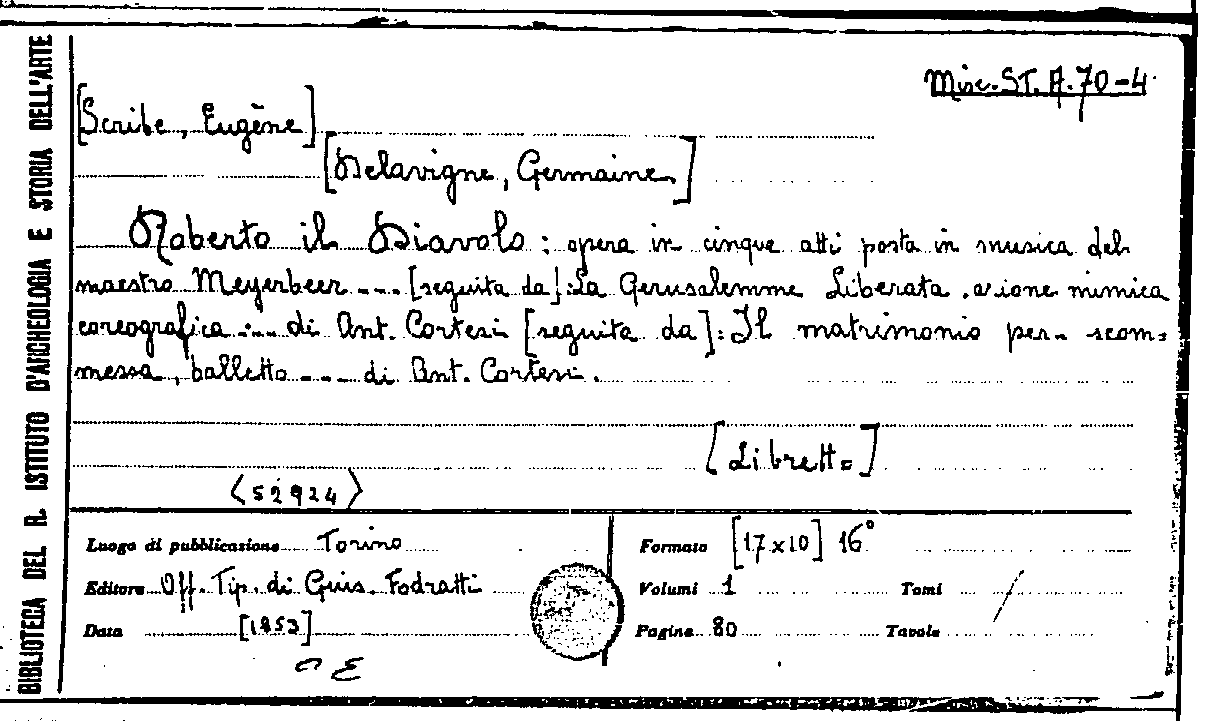 BIBLIOTECA DEL R. ISTITUTO D'ARCHEOLOGIA E STORIA DELL'ARTE
Misc. ST. A. 70-4
[Scribe, Eugène]
[Delavigne, Germaine]
Roberto il Diavolo: opera in cinque atti posta in musica del
maestro Meyerbeer --- [seguita da]: La Gerusalemme Liberata. azione mimica
coreografica ... di Ant. Cortesi [seguita da]: Il matrimonio per scom=
messa, balletto --- di Ant. Cortesi.
[Libretto]
<52924>
Luogo di pubblicazione Torino
Formato [17x10] 16°
Editore Off. Tip. di Gius. Fodratti
Volumi 1 Tomi /
Data [1853]
Pagine 80 Tavole